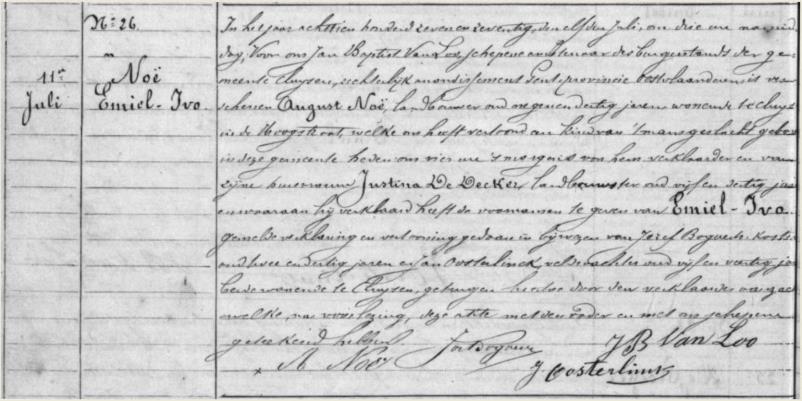 N° 26.
11en
Juli
Noë
Emiel-Ivo
In het jaar achttien honderd zeven en zeventig, den elfden Juli, om drie ure na mid
dag, Voor ons Jan Baptist Van Loo, schepene ambtenaar des burgerstands der ge-
meente Cluysen, rechterlijk arrondissement Gent, provincie Oostvlaanderen is ver-
schenen August Noë, landbouwer oud negen en dertig jaren wonende te Cluys
in de Hoogstraat, welke ons heeft vertoond een kind van 't mans geslacht geboren
in deze gemeente heden om vier ure 's morgens van hem verklaarder en van
zijne huisvrouw Justina De Decker, landbouwster oud vijf en dertig jaren
en waaraan hij verklaard heeft de voornamen te geven van Emiel-Ivo.
Gemelde verklaring en vertooning gedaan in bijwezen van Jozef Bogaert koster
oud twee en dertig jaren en Jan Oosterlinck veldwachter oud vijf en veertig ja
beide wonende te Cluysen, getuigen hiertoe door den verklaarder aanzocht
welke, na voorlezing, deze akte met den vader en met ons schepene
geteekend hebben
A Noë
J B Van Loo
J. Oosterlinck